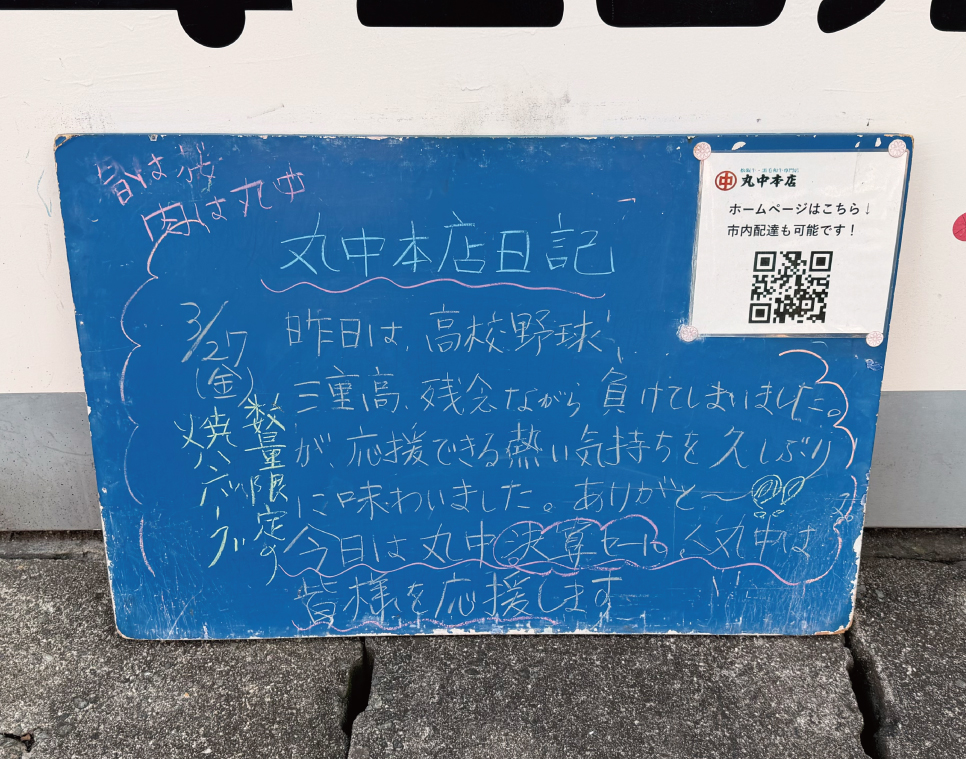 旨は技
肉は丸中
丸中本店日記
3/27
(金)
昨日は、高校野球
三重高、残念ながら負けてしまいました。
が、応援できる熱い気持ちを久しぶり
に味わいました。ありがと〜
今日は丸中決算セール
丸中は
皆様を応援します
数量限定の
焼ハンバーグ
松阪牛・黒毛和牛専門店
丸中本店
ホームページはこちら↓
市内配達も可能です！